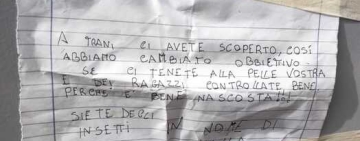 A TRANI CI AVETE SCOPERTO, COSÍ
ABBIAMO CAMBIATO OBBIETIVO.
SE CI TENETE ALLA PELLE VOSTRA
E DEI RAGAZZI CONTROLLATE BENE
PERCHÈ E' BENE NASCOSTA!!!
SIETE DEGLI
INSETTI IN NOME DI